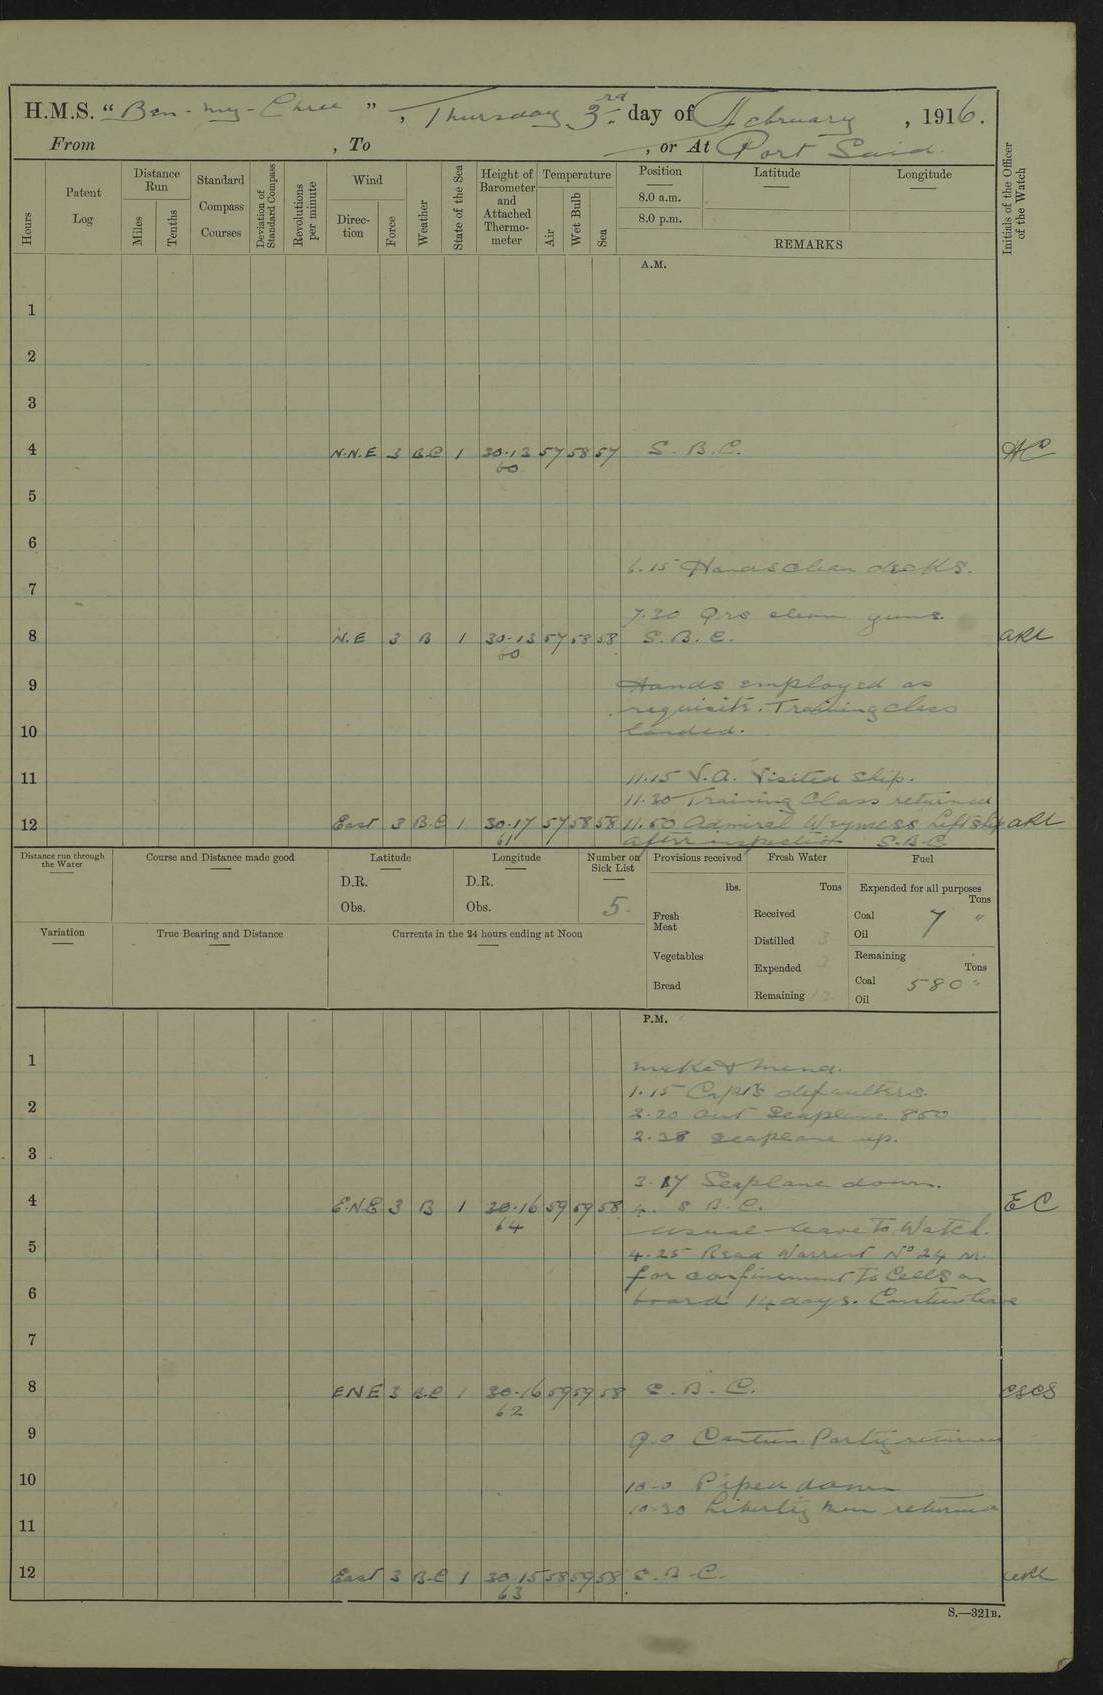 H.M.S. "Ben-my-Chree", Thursday 3rd day of February, 1916.
From , To , or At Port Said.
Hours
Patent Log
Distance Run
Miles
Tenths
Standard Compass Courses
Deviation of Standard Compass
Revolutions per minute
Wind
Direction
Force
Weather
State of the Sea
Height of Barometer and Attached Thermometer
Temperature
Air
Wet Bulb
Sea
Position
8.0 a.m.
8.0 p.m.
Latitude
Longitude
REMARKS
Initials of the Officer of the Watch
A.M.
1
2
3
4 N.N.E 3 B.C 1 30.13 57 58 57 S. B. C. AC
60
5
6
6.15 Hands clean decks.
7
7.30 Qrs clean guns.
8 N.E 3 B 1 30.13 57 58 58 S. B. C. ARL
60
9 Hands employed as
requisite. Training class
10 landed.
11 11.15 V.A. Visited ship.
11.30 Training Class returned
12 East 3 B.C 1 30.17 57 58 58 11.50 Admiral Wemyss left ship ARL
61 after inspection S.B.C.
Distance run through the Water
Course and Distance made good
Latitude
D.R.
Obs.
Longitude
D.R.
Obs.
Number on Sick List
5.
Variation
True Bearing and Distance
Currents in the 24 hours ending at Noon
Provisions received
lbs.
Fresh Meat
Vegetables
Bread
Fresh Water
Tons
Received
Distilled 3
Expended
Remaining
Fuel
Expended for all purposes
Tons
Coal 7 "
Oil
Remaining
Tons
Coal 580 "
Oil
P.M.
1 make & mend.
1.15 Capt's defaulters.
2 2.20 Out Seaplane 850
2.38 Seaplane up.
3
3.17 Seaplane down.
4 E.N.E 3 B 1 30.16 59 59 58 4. S. B. C. EC
64
usual leave to Watch.
5 4.25 Read Warrant No 24
for confinement to Cells on
6 board 14 days. Canteen leave
7
8 ENE 3 B.C 1 30.16 59 59 58 S. B. C. CSCS
62
9 9.0 Canteen Party returned
10 10.0 Piped down
10.30 Liberty men returned
11
12 East 3 B.C 1 30.15 58 59 58 S. B. C. ARL
63
S.—321B.